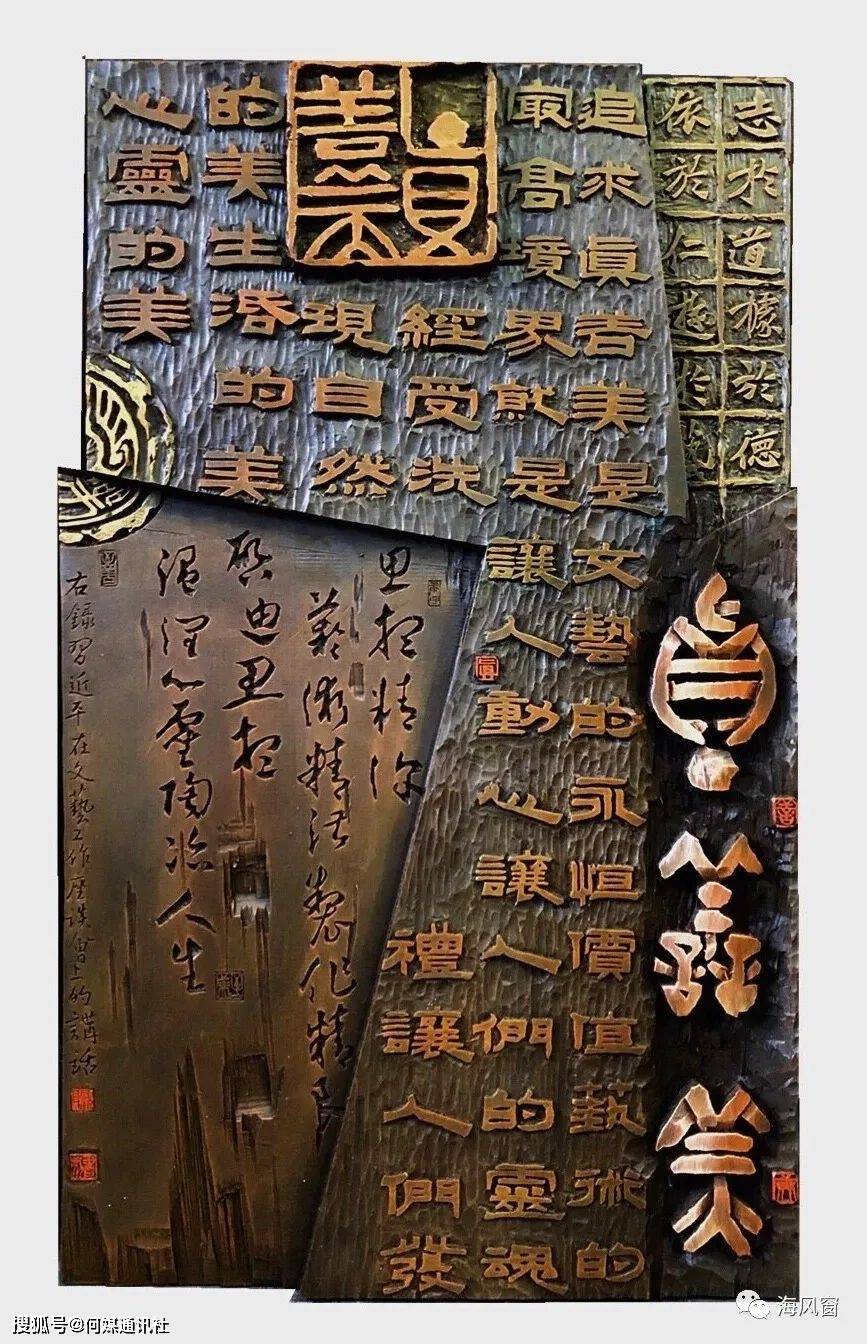 志於道據於德
依於仁遊於
眞
善
美
追求眞善美是文藝的永恒價值藝術的
最高境界就是讓人動心讓人們的靈魂
經受洗禮讓人們發
現自然
的美生活的美
心靈的美
眞善美
思想精深
藝術精湛製作精良
啓迪思想
温潤心靈陶冶人生
右錄習近平在文藝工作座談會上的講話
搜狐号@何媒通讯社
海风窗